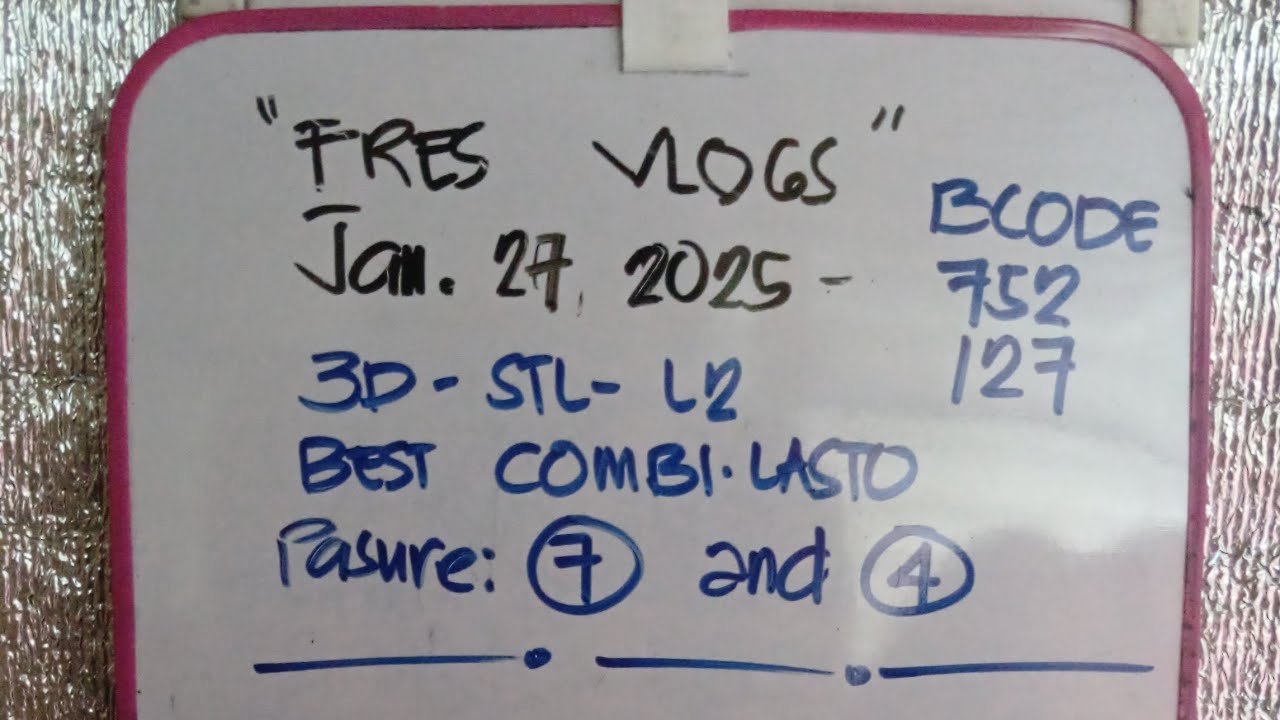 "FRES VLOGS"
Jan. 27, 2025 -
BCODE
752
127
3D - STL - L2
BEST COMBI. LASTO
Pasure: 7 and 4